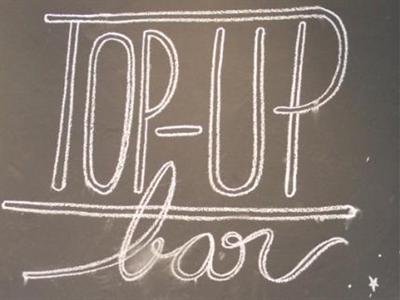 TOP-UP
bar